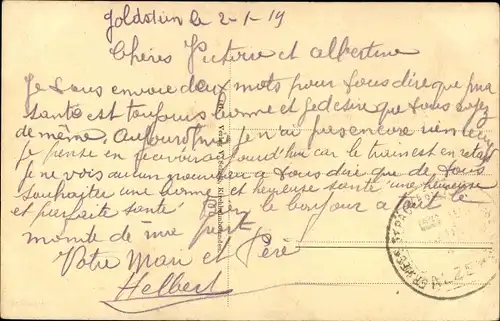 le 2-1-19
Chères Victorine et Albertine
Je vous envoie deux mots pour vous dire que ma
santé est toujours bonne et je desire que vous soyez
de même. Aujourd'hui je n'ai pas encore rien
je pense en recevoir aujourd'hui car le train est en retard
je ne vois aucun nouveau a vous dire que de vous
souhaiter une bonne et heureuse santé "une heureuse
et parfaite santé" le bonjour a tout le
monde de ma part
Votre Mari et Père
Helbert
ALZEY